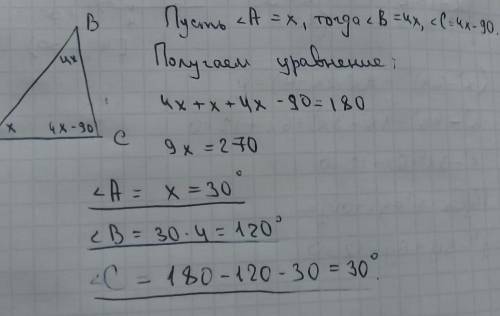 B
Пусть ∠A = x, тогда ∠B = 4x, ∠C = 4x - 90.
4x
Получаем уравнение:
4x + x + 4x - 90 = 180
x 4x - 90 C
9x = 270
∠A = x = 30°
∠B = 30 · 4 = 120°
∠C = 180 - 120 - 30 = 30°.